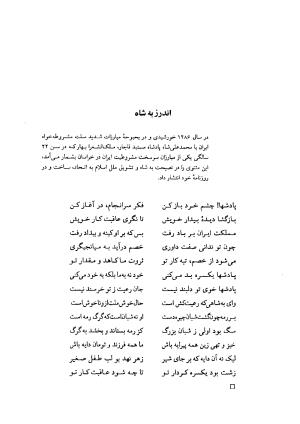 اندرز به شاه
در سال ۱۲۸۶ خورشیدی و در بحبوحهٔ مبارزات شدید ملت مشروطه‌خواه
ایران با محمدعلی‌شاه پادشاه مستبد قاجار، ملک‌الشعرا بهار که در سن ۲۲
سالگی یکی از مبارزان سرسخت مشروطیت ایران در خراسان بشمار می‌آمد،
این مثنوی را در نصیحت به شاه و تشویق ملل اسلام به اتحاد، ساخت و در
روزنامهٔ خود انتشار داد.
پادشها! چشم خرد باز کن فکر سرانجام، در آغاز کن
بازگشا دیدهٔ بیدار خویش تا نگری عاقبت کار خویش
مملکت ایران بر باد رفت بس که بر او کینه و بیداد رفت
چون تو ندانی صفت داوری خصم درآید به میانجیگری
خصم، تبه کار تو ثروت ما کاهد و مقدار تو
پادشها یکسره بد می‌کنی خود نه به ما بلکه به خود می‌کنی
پادشها خوی تو دلبند نیست جان رعیت ز تو خرسند نیست
وای به شاهی که رعیت‌کش است حال خوش ملت از او ناخوش است
بر رمه چو نگشت شبان چیره‌دست او نه شبان است که گرگ رمه است
سگ بود اولی ز شبان بزرگ کز رمه بستاند و بخشد به گرگ
خیز و تهی زین همه پیرایه باش ما همه فرزند و تو مان دایه باش
لیک نه آن دایه که بر جای شیر زهر نهد بو لب طفل صغیر
زشت بود یکسره کردار تو تا چه شود عاقبت کار تو